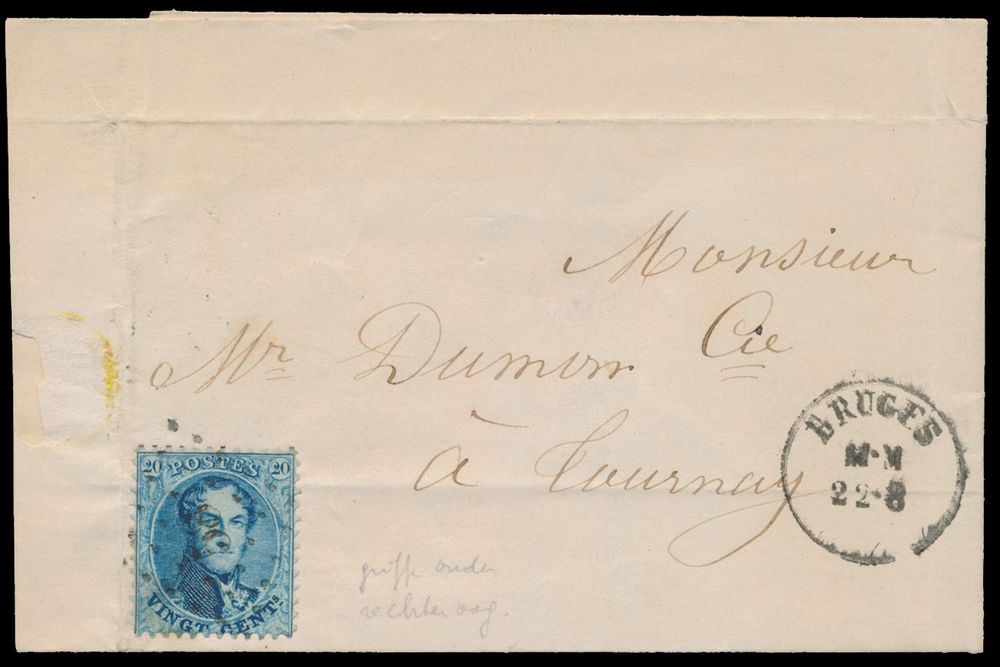 Monsieur
Mr Dumon Cie
à Tournay
BRUGES
M·M
22·8
20 POSTES 20
VINGT CENTS
griffe onder
rechter oog.